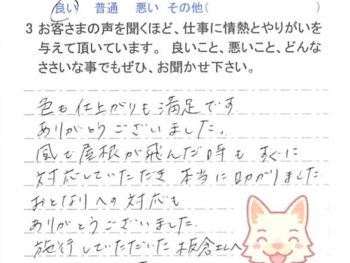 良い 普通 悪い その他( )
3 お客さまの声を聞くほど、仕事に情熱とやりがいを
与えて頂いています。 良いこと、悪いこと、どんな
ささいな事でもぜひ、お聞かせ下さい。
色も仕上がりも満足です
ありがとうございました。
風で屋根が飛んだ時も すぐに
対応していただき 本当に助かりました
おとなりへの対応も
ありがとうございました。
施行していただいた 板倉さんへ